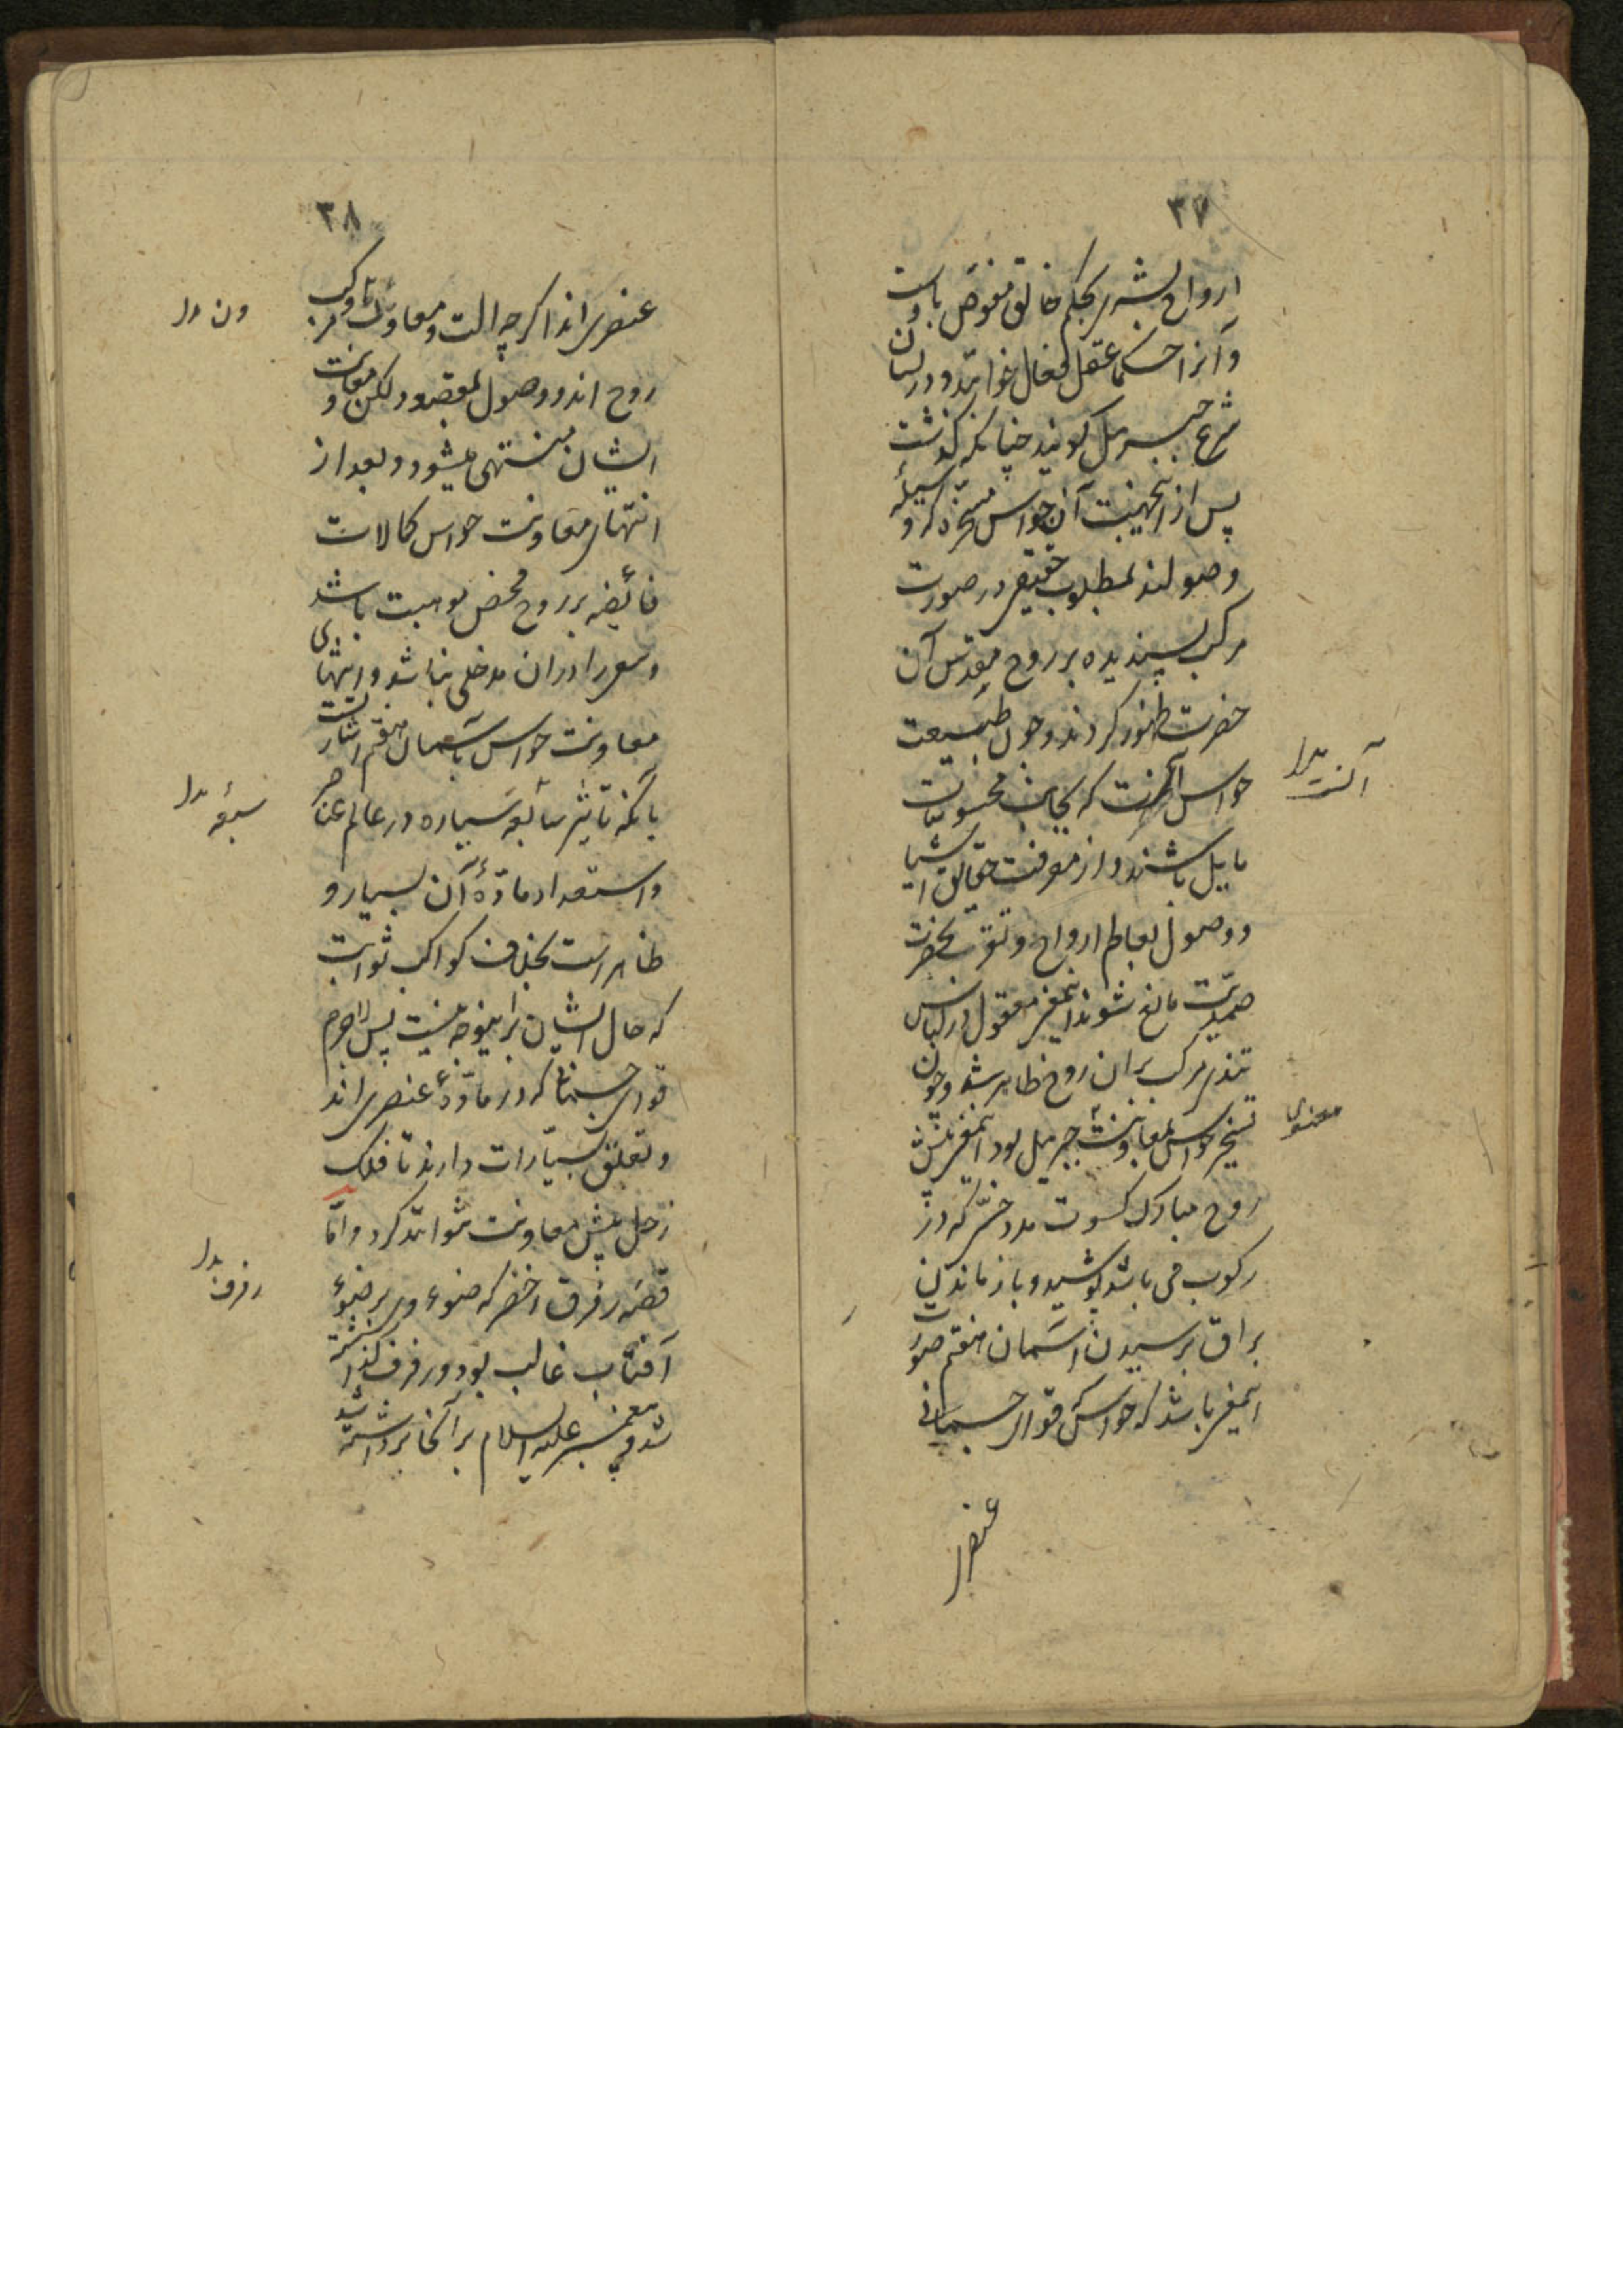 ۳۷
ارواح بشر بحکم خالق مفوض باوست
و آنرا حکما عقل فعال خوانند و در لسان
شرع جبرئیل گویند چنانکه گذشت
پس از اینجهت آن حواس مسخره کرد و
وصولند بمطلوب حقیقی در صورت
مرکب پسندیده بر روح مقدس آن
حضرت ظهور کردند و چون طبیعت
حواس آنست که بجانب محسوسات
مایل باشند و از معرفت حقایق اشیا
و وصول بعالم ارواح و تقرب بحضرت
صمدیت مانع شوند اینمعنی معقول در لباس
تندی مرکب بران روح ظاهر شد و چون
تسخیر حواس بمعاونت جبرئیل بود اینمعنی پیش
روح مبارک کسوت مدد خیر که در
رکوب می باشد پوشید و باز ماندن
براق برسیدن آسمان هفتم صورت
اینمعنی باشد که حواس قوای جسمانی
عنصری
آنست بدل
معنوی
۳۸
عنصری اند اگر چه الت و معاون و مرکب
روح اند و وصول بمقصود لکن معاونت
ایشان منتهی میشود و بعد از
انتهای معاونت حواس کمالات
فائضه بر روح محض موهبت باشد
و سعی را دران مدخلی نباشد و انتهای
معاونت حواس بآسمان هفتم اشارتست
بآنکه تاثیر سابعه سیاره در عالم عناصر
و استعداد مادهٔ آن بسیار و
ظاهر است بخلاف کواکب ثوابت
که حال ایشان براینوجه نیست پس لاجرم
قوای جسمانی که در مادهٔ عنصری اند
و تعلق بسیارات دارند تا فلک
زحل بیش معاونت نتوانند کرد و اما
قصه رفرق اخضر که ضوء وی بر ضوء
آفتاب غالب بود و رفرف گذاشته
شد و پیغمبر علیه السلام بر آنجا برداشته شد
ون بدل
سبعه بدل
رفرف بدل